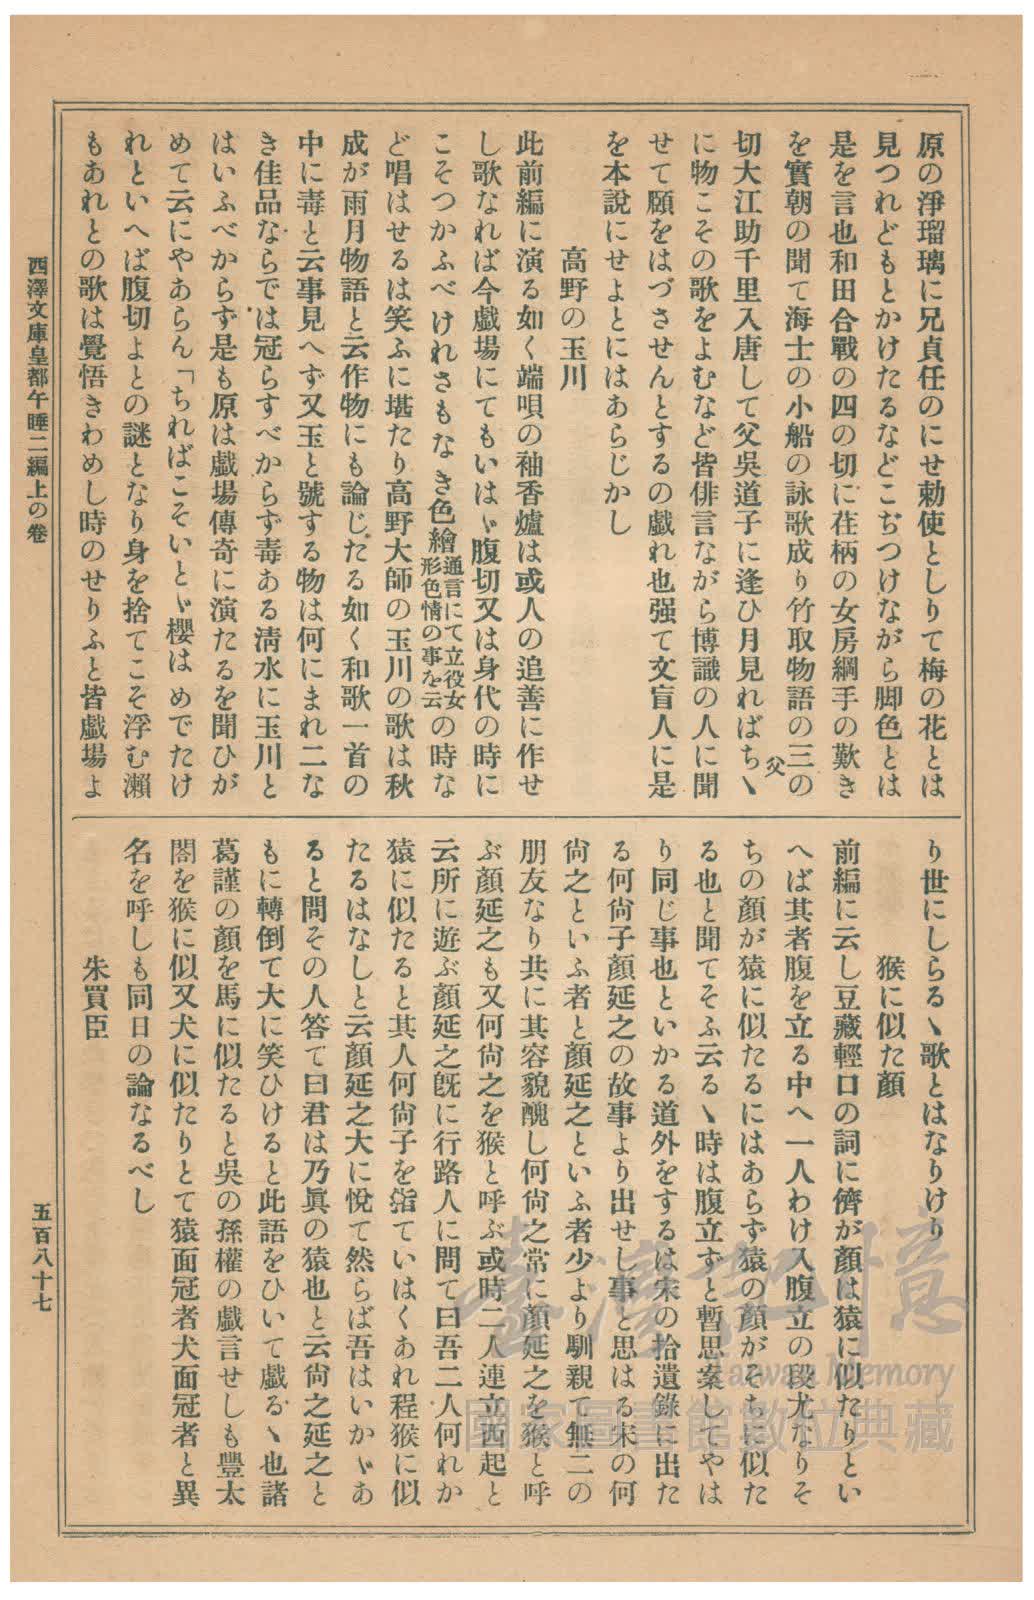 原の淨瑠璃に兄貞任のにせ勅使としりて梅の花とは
見つれどもとかけたるなどこぢつけながら脚色とは
是を言也和田合戰の四の切に荏柄の女房綱手の歎き
を實朝の聞て海士の小船の詠歌成り竹取物語の三の
切大江助千里入唐して父吳道子に逢ひ月見ればちゝ
父
に物こその歌をよむなど皆俳言ながら博識の人に聞
せて願をはづさせんとするの戯れ也强て文盲人に是
を本說にせよとにはあらじかし
高野の玉川
此前編に演る如く端唄の袖香爐は或人の追善に作せ
し歌なれば今戯場にてもいはゞ腹切又は身代の時に
こそつかふべけれさもなき色繪通言にて立役女形色情の事を云の時な
ど唱はせるは笑ふに堪たり高野大師の玉川の歌は秋
成が雨月物語と云作物にも論じたる如く和歌一首の
中に毒と云事見へず又玉と號する物は何にまれ二な
き佳品ならでは冠らすべからず毒ある淸水に玉川と
はいふべからず是も原は戯場傳奇に演たるを聞ひが
めて云にやあらん「ちればこそいとゞ櫻はめでたけ
れといへば腹切よとの謎となり身を捨てこそ浮む瀨
もあれとの歌は覺悟きわめし時のせりふと皆戯場よ
り世にしらるゝ歌とはなりけり
猴に似た顔
前編に云し豆藏輕口の詞に儕が顔は猿に似たりとい
へば其者腹を立る中へ一人わけ入腹立の段尤なりそ
ちの顔が猿に似たるにはあらず猿の顔がそちに似た
る也と聞てそふ云るゝ時は腹立ずと暫思案してやは
り同じ事也といかる道外をするは宋の拾遺錄に出た
る何尙子顔延之の故事より出せし事と思はる宋の何
尙之といふ者と顔延之といふ者少より馴親て無二の
朋友なり共に其容貌醜し何尙之常に顔延之を猴と呼
ぶ顔延之も又何尙之を猴と呼ぶ或時二人連立西起と
云所に遊ぶ顔延之旣に行路人に問て曰吾二人何れか
猿に似たると其人何尙子を指ていはくあれ程猴に似
たるはなしと云顔延之大に悅て然らば吾はいかゞあ
ると問その人答て曰君は乃眞の猿也と云尙之延之と
もに轉倒て大に笑ひけると此語をひいて戯るゝ也諸
葛謹の顔を馬に似たると吳の孫權の戯言せしも豐太
閤を猴に似又犬に似たりとて猿面冠者犬面冠者と異
名を呼しも同日の論なるべし
朱買臣
西澤文庫皇都午睡二編上の卷
五百八十七
臺灣記憶
Taiwan Memory
國家圖書館數位典藏